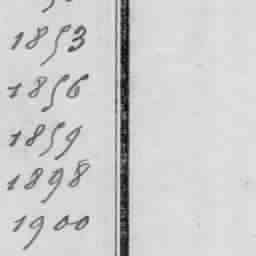 1853
1856
1859
1898
1900